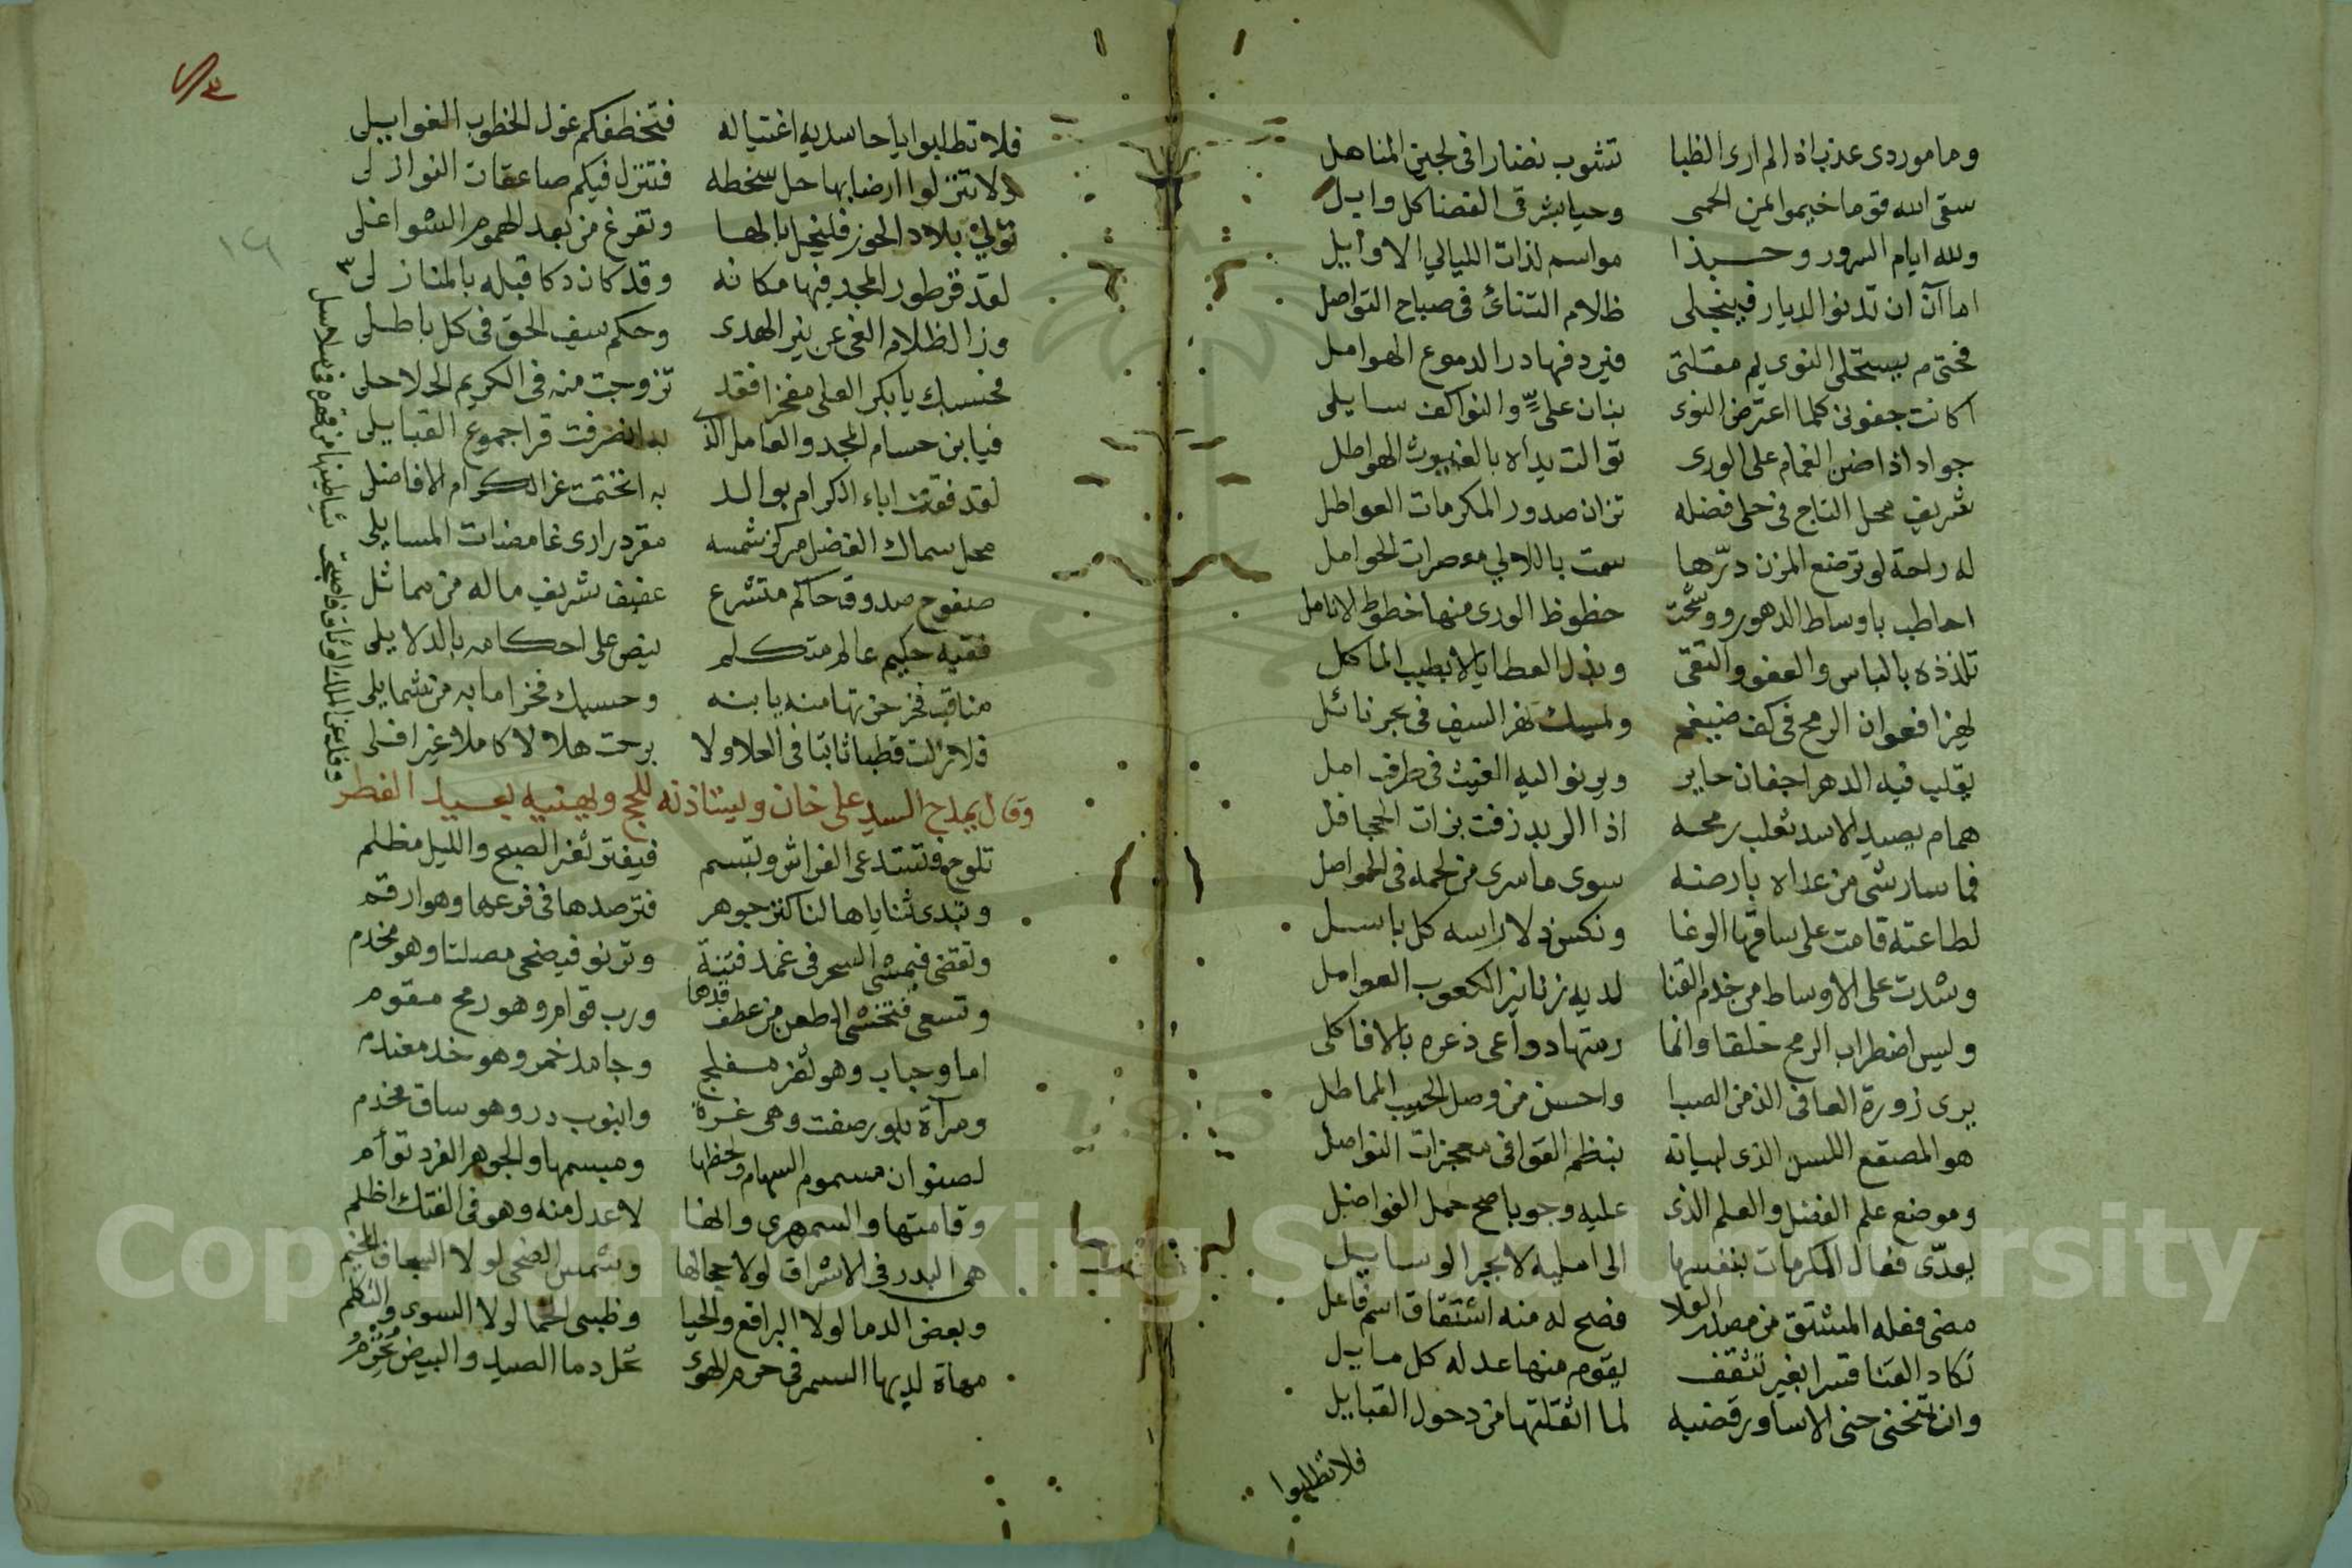 وما موردى عذب اذا لم ارى الظبا تشوب نضارا فى لجين المناهل
سقى الله قوما خيموا ايمن الحمى وحيا بشرقى الغضا كل وابل
ولله ايام السرور وحبذا مواسم لذات الليالي الاوايل
اما آن ان تدنو الديار فينجلى ظلام التنائ فى صباح التواصل
فحتى م يستحلى النوى يم مقلتى فيرد فها در الدموع الهوامل
اكانت جفونى كلما اعترض النوى بنان علىٍّ والنوا كف سايلى
جواد اذا ضن الغمام على الورى توالت يداه بالغيوث الهواطل
شريف محل التاج فى حلى فضله تزان صدور المكرمات العواطل
له راحة لو ترضع المزن درّها سمت باللالي معصرات الحوامل
احاطب باوساط الدهور ووشّحت حظوظ الورى منها خطوط الانامل
تلذذه بالباس والعفو والتقى وبذل العطايا لا بطيب الماكل
يهز افعوان الرمح فى كف ضيغم ويمسك نهر السيف فى بحر نائل
يقلب فيه الدهر اجفان حاير ويرنو اليه الغيث فى طرف امل
همام يصيد الاسد ثعلب رمحه اذا الربد زفت بزات الجحافل
فما سار شى من عداه بارضه سوى ما سرى من لحمه فى الحواصل
لطاعته قامت على ساقها الوغا ونكس ذلا راسه كل باسل
وشدت على الاوساط من خدم القنا لديه زنانير الكعوب العوامل
وليس اضطراب الرمح خلقا وانما رمتها دواعى ذعره بالافاكلى
يرى زورة العافى الذ من الصبا واحسن من وصل الحبيب المماطل
هو المصقع اللسن الذى لبيانه بنظم القوافى معجزات الفواصل
وموضع علم الفضل والعلم الذى عليه وجوبا صح حمل الفواضل
يعدّى فعال المكرمات بنفسها الى امليه لا بجر الوسايل
مضى فعله المشتق من مصدر العلا فصح له منه اشتقاق اسم فاعل
تكاد القنا قسرا بغير تثقف يقوم منها عدله كل مايل
وان تنحنى حنى الاساور قضبه لما اثقلتها من دحول القبايل
فلا تطلبوا
فلا تطلبوا يا حاسديه اغتياله فتخطفكم غول الخطوب الغوايلى
ولا تنزلوا ارضا بها حل سخطه فتنزل فيكم صاعقات النوازلى
تولى بلاد الحوز فليخل بالها وتفرغ من بعد الهموم الشواغلى
لقد قر طور المجد فيها مكانه وقد كان دكا قبله بالمنازلى
وزال ظلام الغى عن نير الهدى وحكم سيف الحق فى كل باطلى
فحسبك يا بكر العلى مفخرا فقد تزوجت منه فى الكريم الحلاحلى
فيا بن حسام المجد والعامل الذى به انصرفت قرا جموع القبايلى
لقد فقت اباء الكرام بوالد به اختتمت غر الكرام الافاضل
محل سماك الفضل مركز شمسه مقر درارى غامضات المسايلى
صفوح صدوق حاكم متشرع عفيف شريف ماله من مماثل
فقيه حكيم عالم متكلم ينص على احكامه بالدلايلى
مناقب فخر حزتها منه يا بنه وحسبك فخرا ما به من شمايلى
فلا زلت قطبا ثابتا فى العلا ولا برحت هلالا كاملا غير افلى
وقال يمدح السيد على خان ويستاذنه للحج ويهنيه بعيد الفطر
تلوح فتستدعى الفراش وتبسم فيفتر ثغر الصبح والليل مظلم
وتبدى ثناياها لنا كنز جوهر فترصدها فى فرعها وهو ارقم
وتغضى فيمشى السحر فى غمد فتنة وترنو فيضحى مصلتا وهو مخدم
وتسعى فتخشى الطعن من عطف قدها ورب قوام وهو رمح مقوم
اما وحباب وهو ثغر مفلج وجامد خمر وهو خد معندم
ومرآة بلور صفت وهى غرة وانبوب در وهو ساق مخدم
لصنوان مسموم السهام ولحظها ومبسمها والجوهر الفرد توأم
وقامتها والسمهرى وانها لاعدل منه وهو فى الفتك اظلم
هى البدر فى الاشراق لولا حجالها وشمس الضحى لولا السجاف المخيم
وبعض الدما لولا البراقع والحيا وظبى الحما لولا السوى والتكلم
مهاة لديها السمر فى حرم الهوى تحل دما الصيد والبيض تحرم